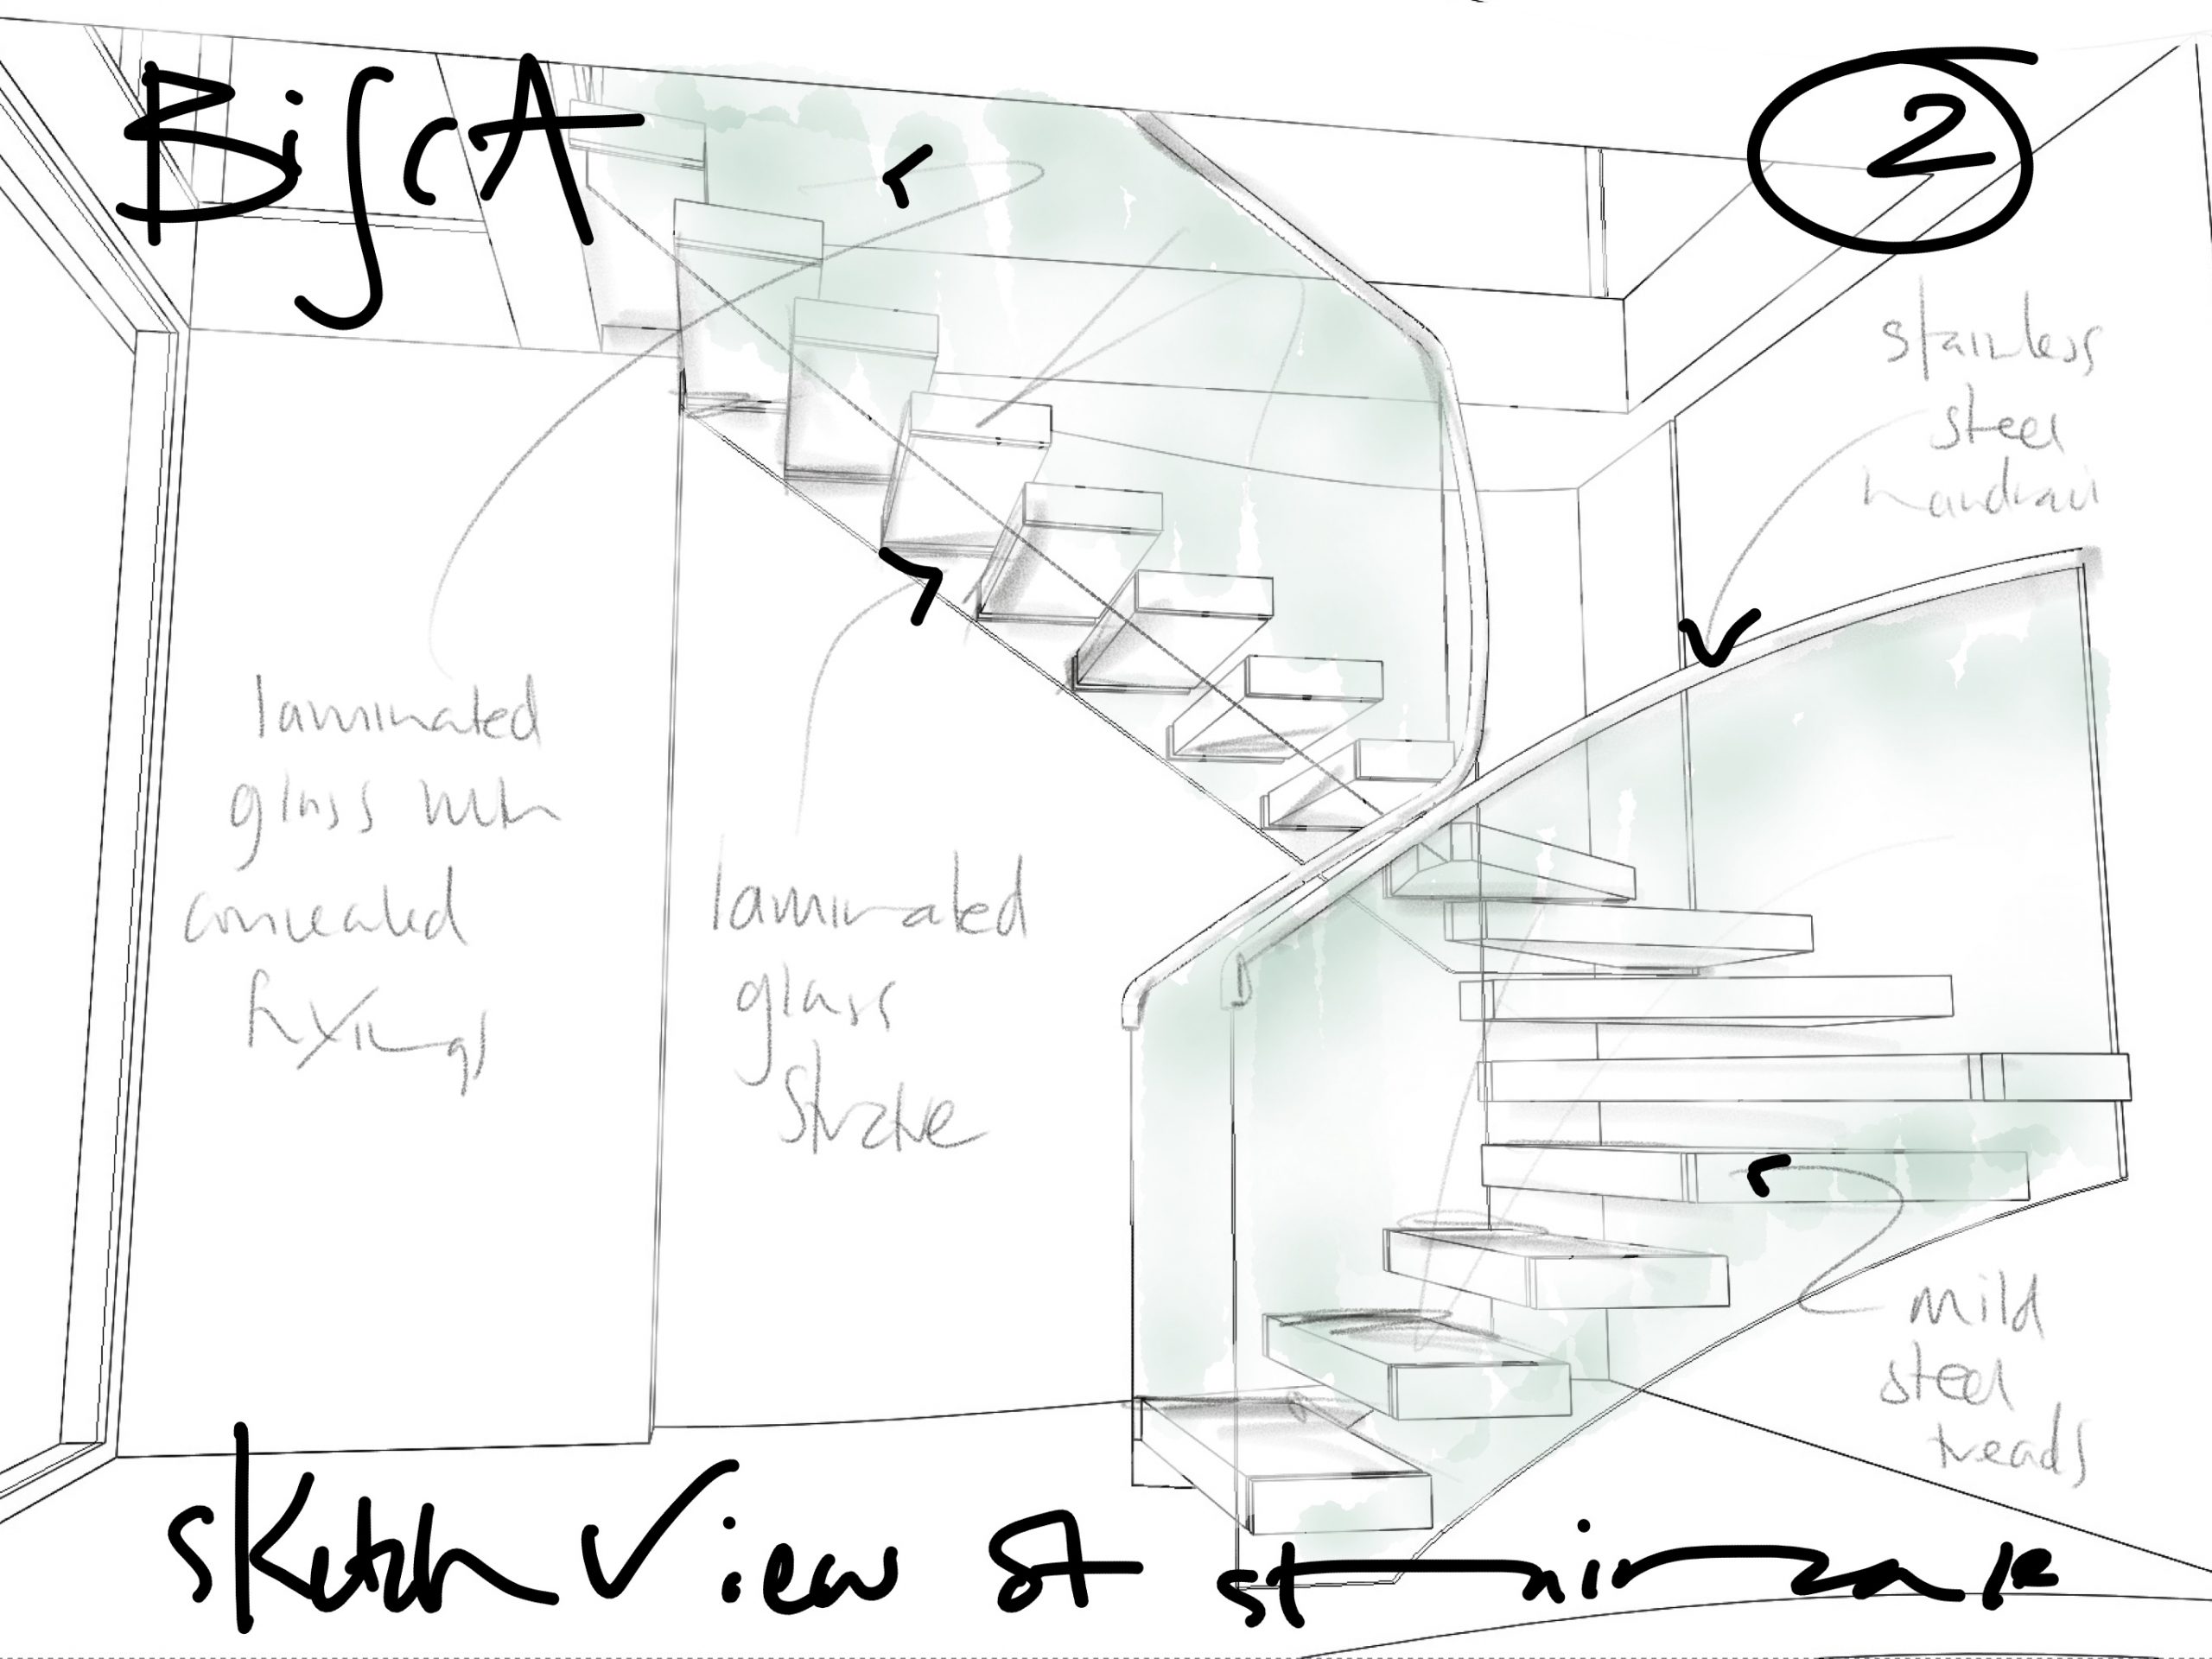 BiscA
2
stainless
steel
handrail
laminated
glass with
concealed
fixings
laminated
glass
mild
steel
treads
sketch view of staircase